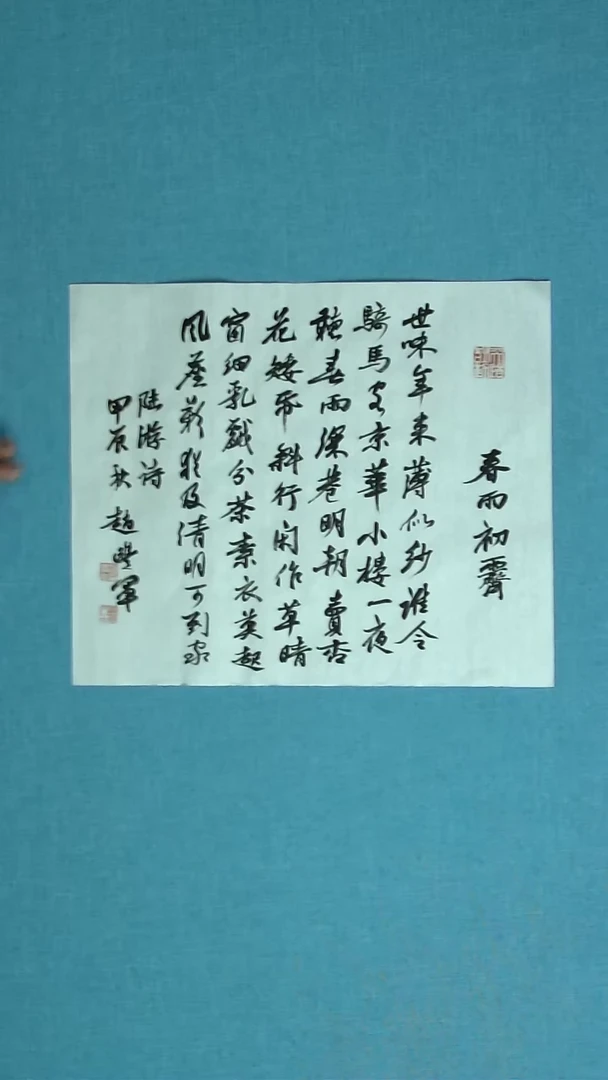 春雨初霽
世味年来薄似紗誰令
騎馬客京華小樓一夜
聽春雨深巷明朝賣杏
花矮紙斜行閑作草晴
窗細乳戲分茶素衣莫起
風塵歎猶及清明可到家
陸游诗
甲辰秋 趙軍